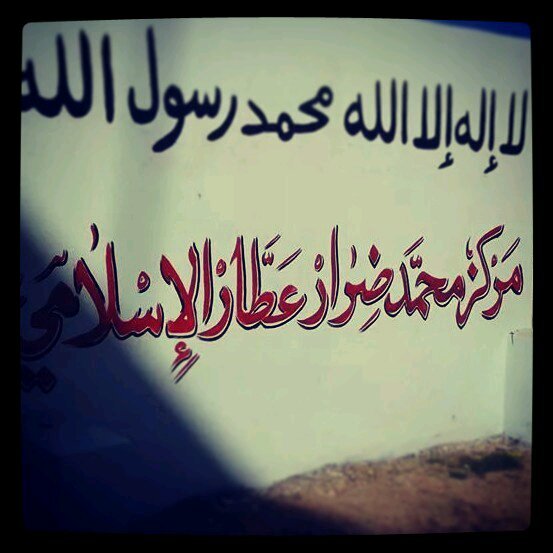 لا إله إلا الله محمد رسول الله
مَركز محمَّد ضِرار عَطَّار الإِسْلامي